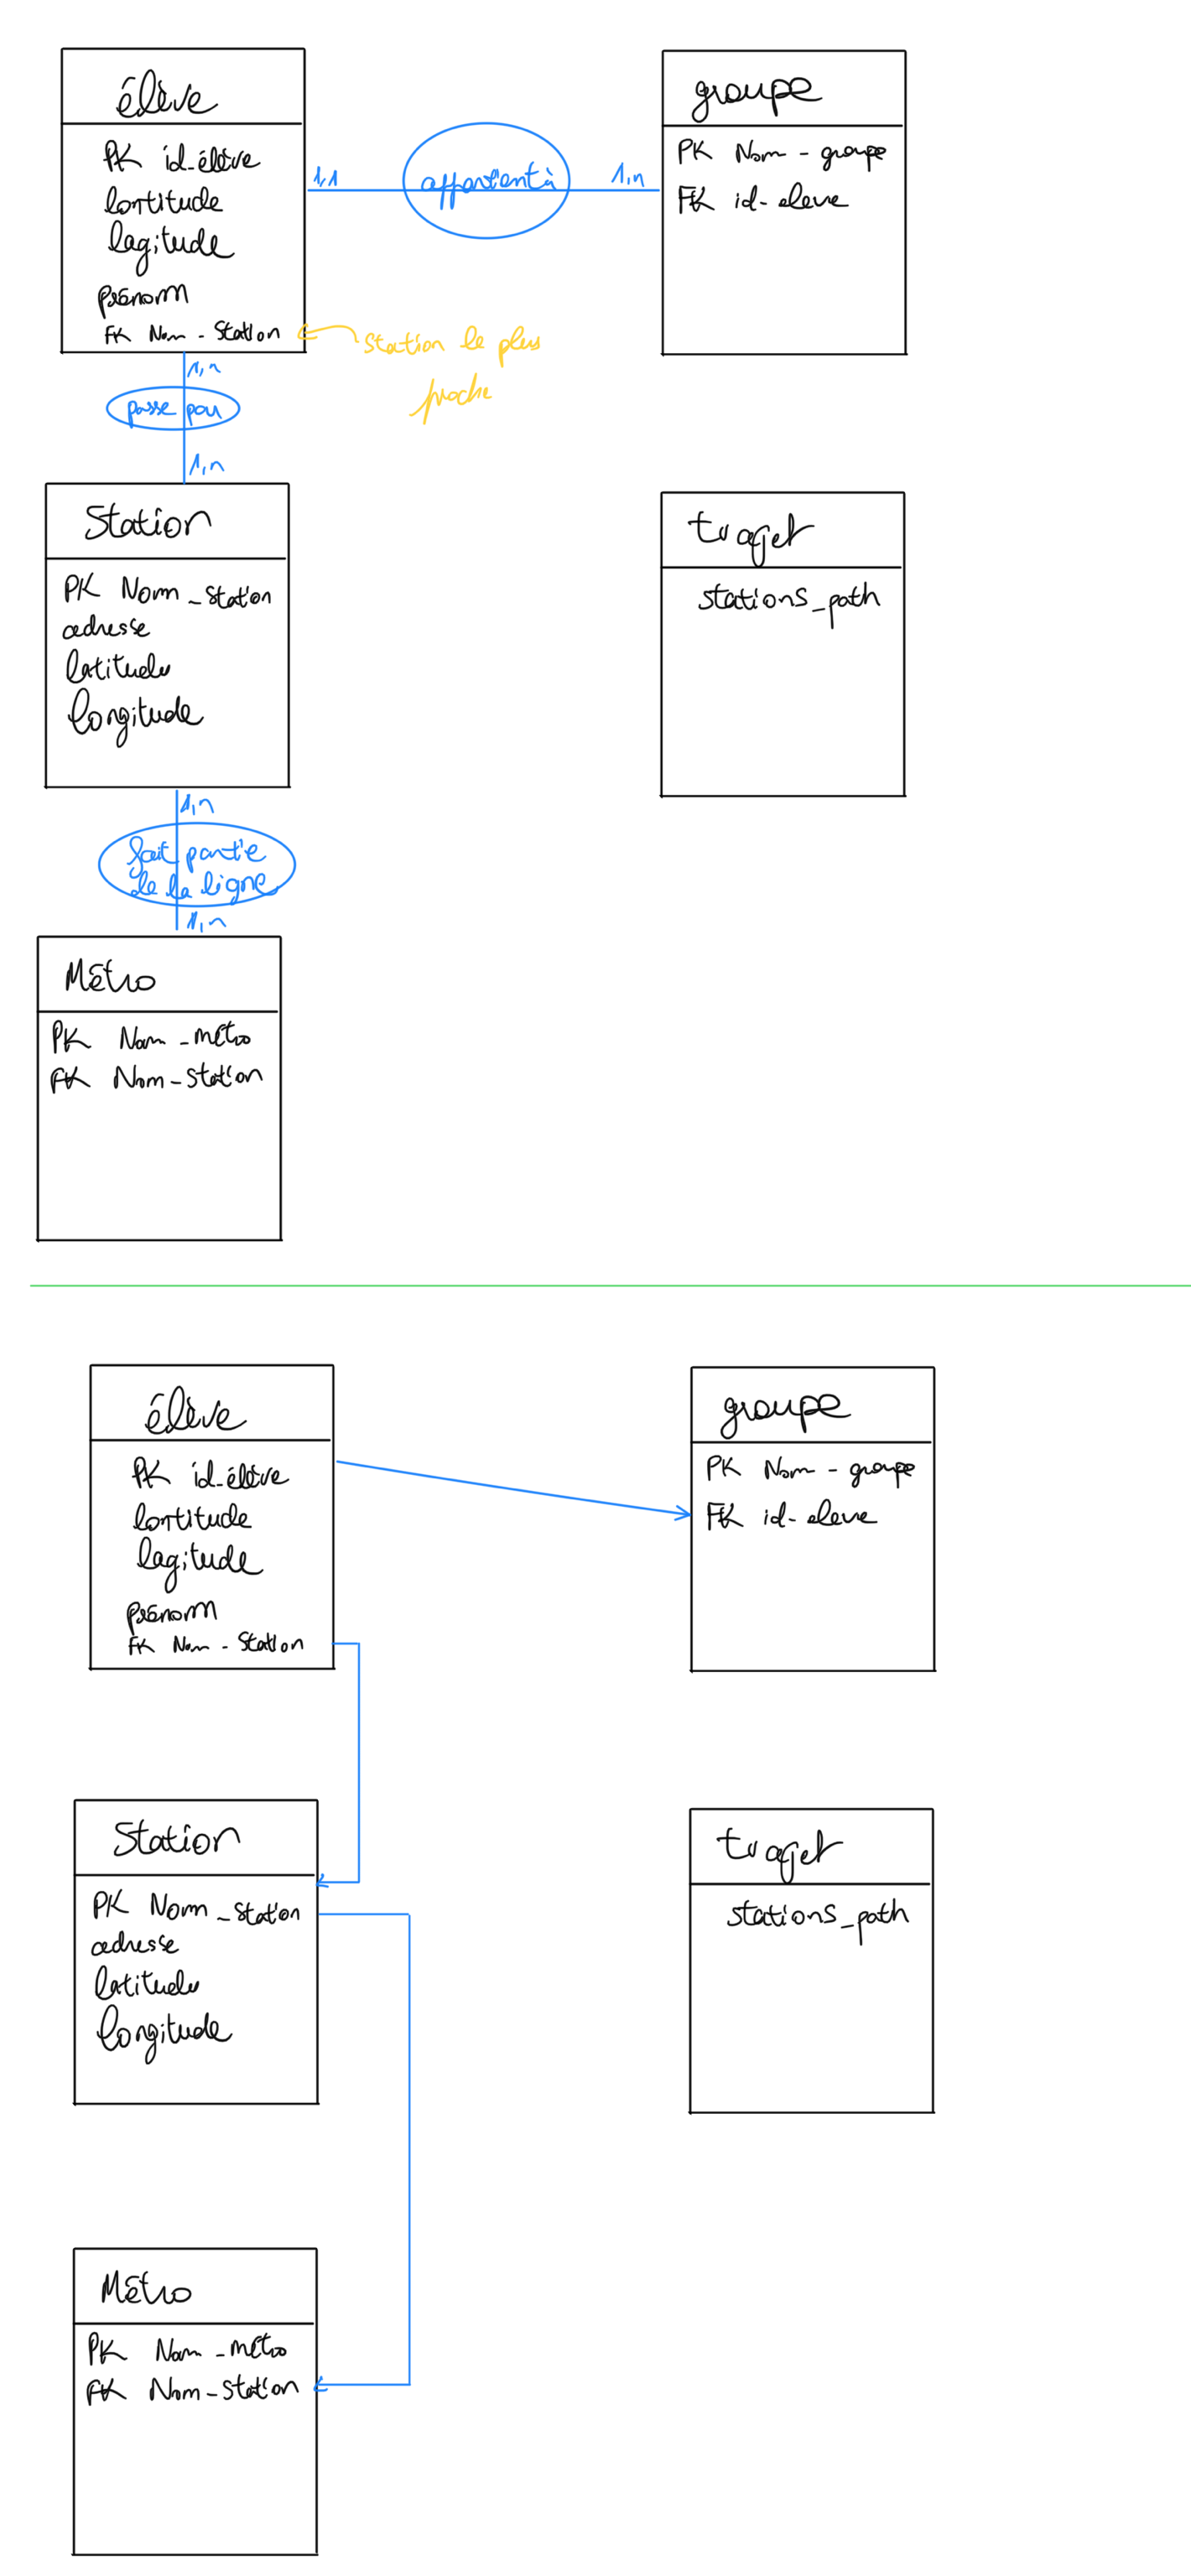 élève
PK id_élève
lortitude
lagitude
prénom
FK Nom - Station
1,1
appartientà
1,n
groupe
PK Nom - groupe
FK id- eleve
station le plus
proche
1,n
passe par
1,n
Station
PK Nom _ station
adresse
latitude
longitude
trajet
stations_path
1,n
fait partie
de la ligne
1,n
Métro
PK Nom _ métro
FK Nom _ station
élève
PK id_élève
lortitude
lagitude
prénom
FK Nom - Station
groupe
PK Nom - groupe
FK id- eleve
Station
PK Nom _ station
adresse
latitude
longitude
trajet
stations_path
Métro
PK Nom _ métro
FK Nom _ station